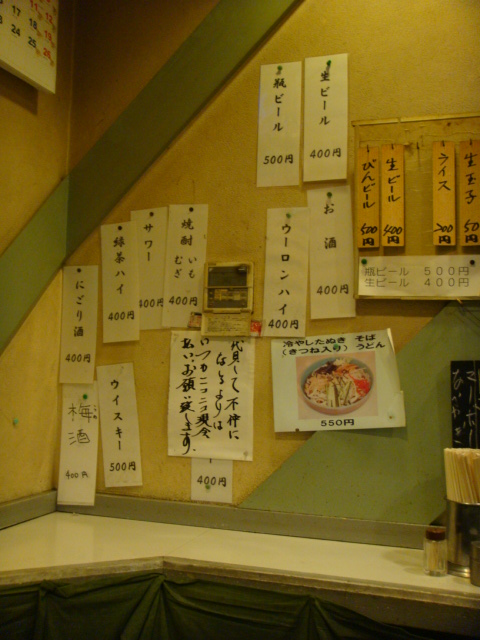 生ビール
400円
瓶ビール
500円
お酒
400円
ウーロンハイ
400円
焼酎 いも
むぎ
400円
サワー
400円
緑茶ハイ
400円
にごり酒
400円
ウイスキー
500円
梅酒
400円
400円
生玉子
50
ライス
200円
生ビール
400円
びんビール
500円
瓶ビール 500円
生ビール 400円
冷やしたぬき そば
(きつね入り) うどん
550円
代貸して不仲に
なるよりは
いつもニコニコ現金
払いお願い致します
17 18 19
24 25 26